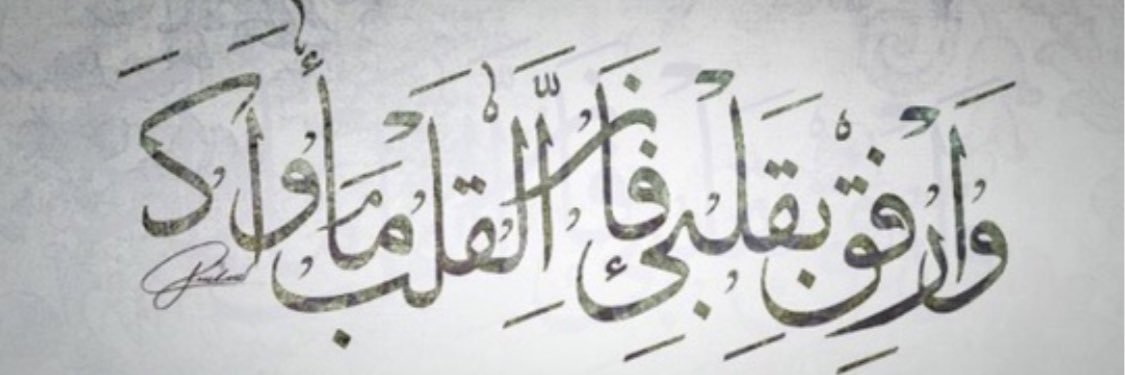 وَارْفِقْ بِقَلْبِي فَإِنَّ الْقَلْبَ مَأْوَاكَ